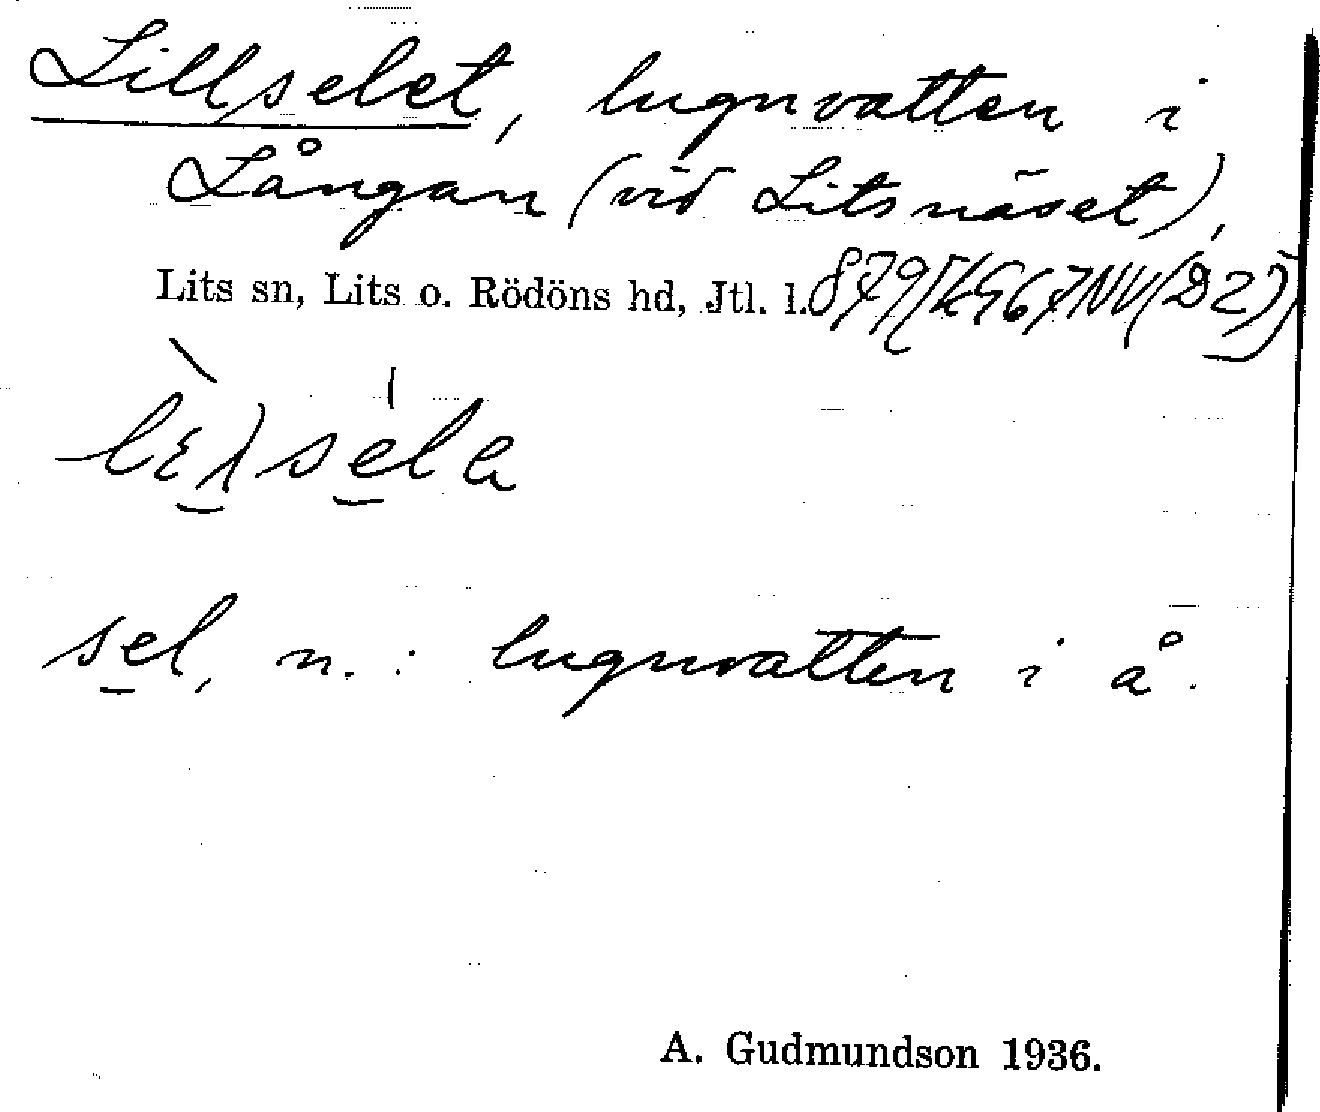 Lillselet, lugnvatten i
Långan (vid Litsnäset),
Lits sn, Lits o. Rödöns hd, Jtl. l.
sel, n. : lugnvatten i å.
A. Gudmundson 1936.